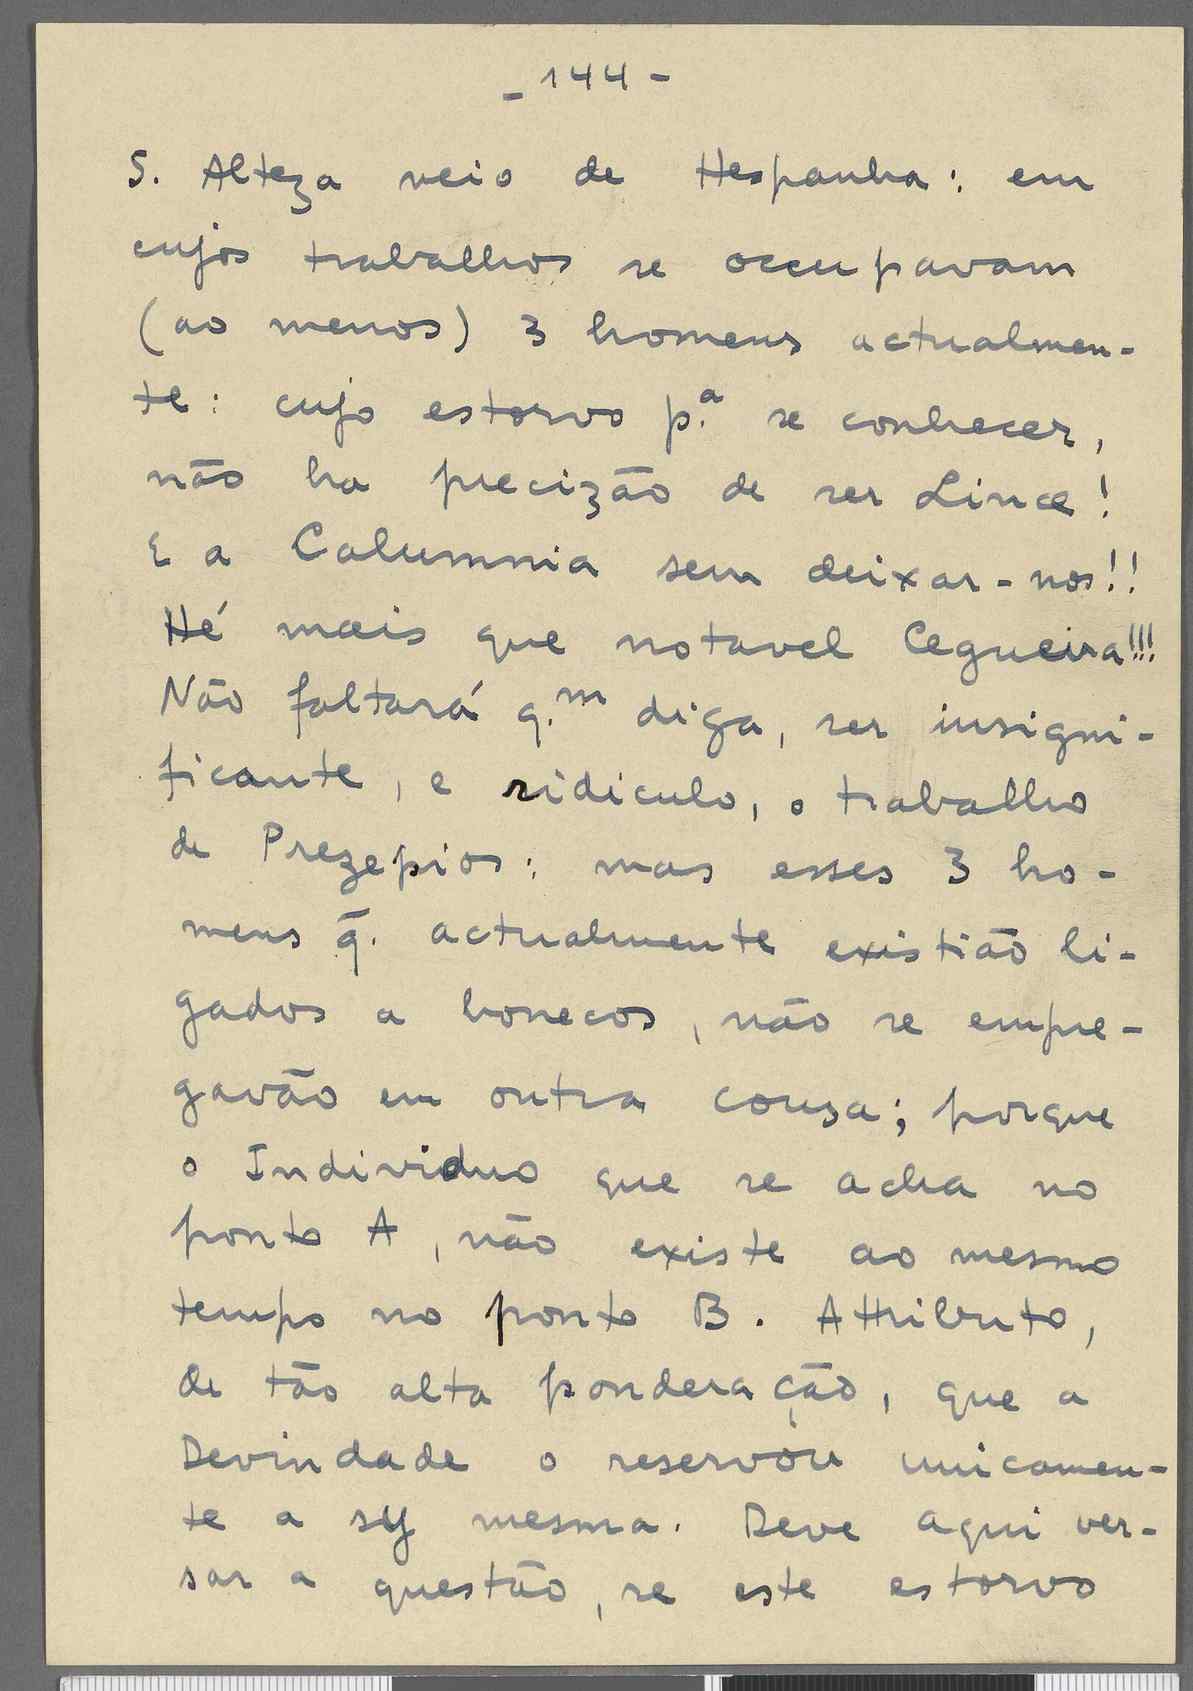 - 144 -
S. Alteza veio de Hespanha: em
cujos trabalhos se occupavam
(ao menos) 3 homens actualmen-
te: cujo estorvo p.ª se conhecer,
não ha precizão de ser Lince!
E a Calumnia sem deixar-nos!!
Hé mais que notavel Cegueira!!!
Não faltará q.m diga, ser insigni-
ficante, e ridiculo, o trabalho
de Prezepios: mas esses 3 ho-
mens q̃. actualmente existião li-
gados a bonecos, não se empre-
gavão em outra couza; porque
o Individuo que se acha no
ponto A, não existe ao mesmo
tempo no ponto B. Attributo,
de tão alta ponderação, que a
Devindade o reservou unicamen-
te a sy mesma. Deve aqui ver-
sar a questão, se este estorvo